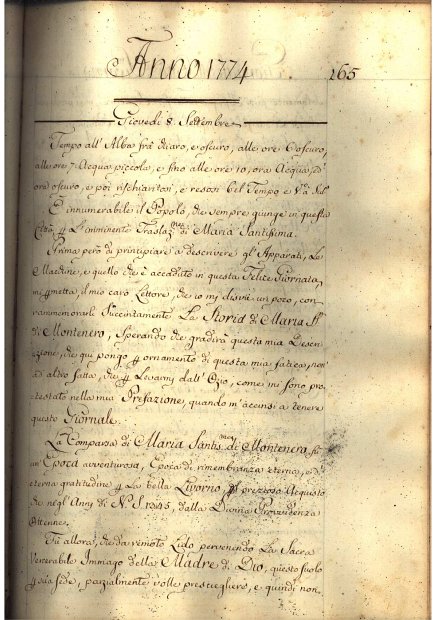 Anno 1774
165
Giovedi 8. Settembre
Tempo all' Alba frà chiaro, e oscuro, alle ore 6 oscuro,
alle ore 7. Acqua piccola, e fino alle ore 10, ora Acqua, ed
ora oscuro, e poi rischiaritosi, e resosi bel Tempo e
È innumerabile il Popolo, che sempre giunge in questa
Città p l'imminente Traslaz.ne di Maria Santissima.
Prima però di principiare a descrivere gl' Apparati, Le
Macchine, e quello che è accaduto in questa Felice Giornata,
mi pmetta, il mio caro Lettore, che io mi disvii un poco, con
rammemorarli Succintamente La Storia di Maria SS.
di Montenero, Sperando che gradirà questa mia Digres-
zione, che qui pongo p ornamento di questa mia fatica, non
ad altro fatta, che p Levarmi dall' Ozio, come mi sono pro-
testato nella mia Prefazione, quando m' accinsi a tenere
questo Giornale.
La Comparsa di Maria Santis.ma di Montenero fù
un' Epoca avventurosa, Epoca di rimembranza eterna, ed
eterna gratitudine p La bella Livorno, p prezioso Acquisto
che negl' Anni di N. S. 1345, dalla Divina Provvidenza
Ottenne.
Fù allora, che da remoto Lido pervenendo La Sacra
Venerabile Immago della Madre di Dio, questo suolo
p sua sede, parzialmente volle prescegliere, e quindi non